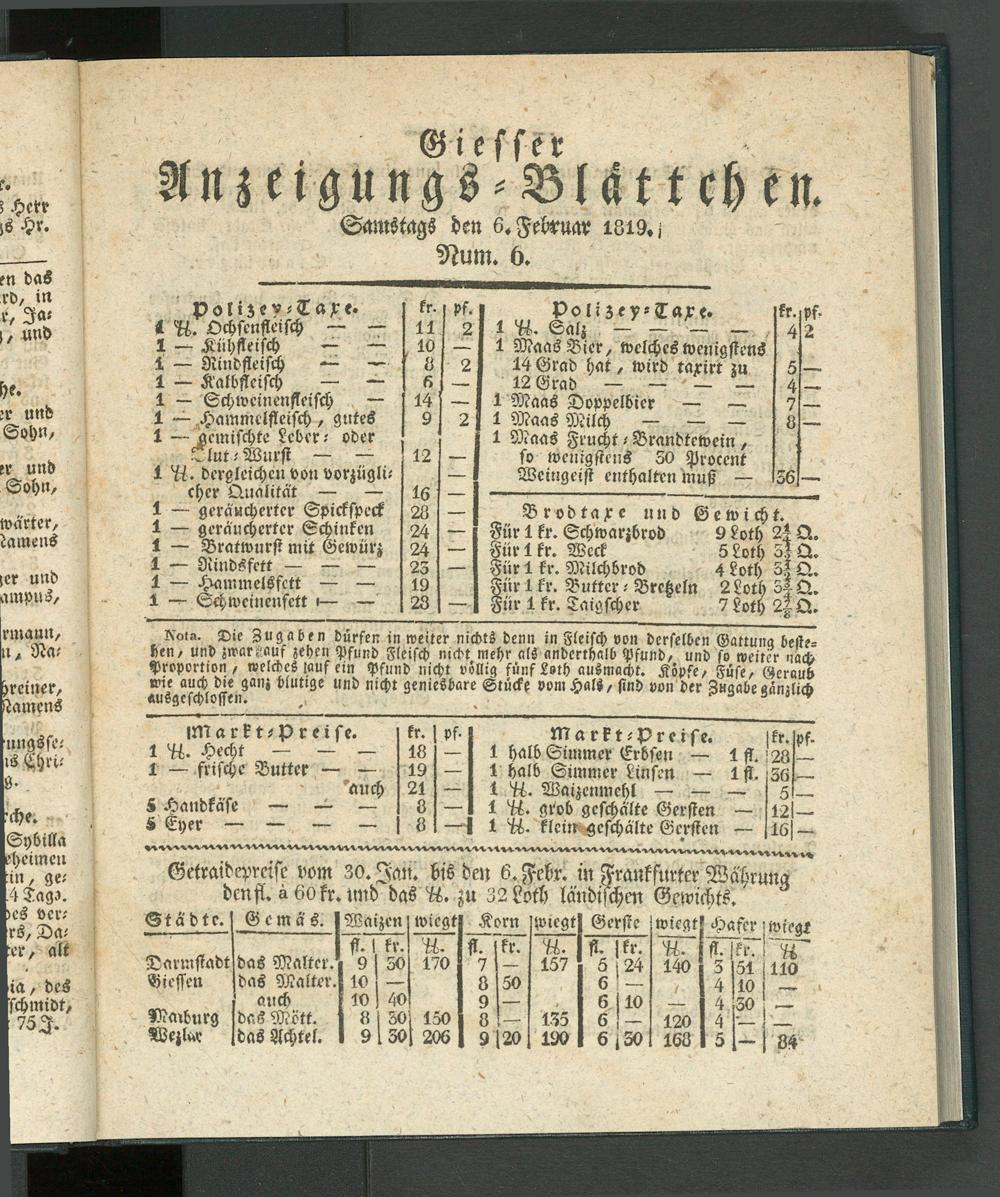 r.
s Herr
gs Hr.
en das
rd, in
r, Ja-
, und
he.
er und
Sohn,
er und
Sohn,
wärter,
Namens
er und
ampus,
rmann,
n, Na-
hreiner,
Namens
rungsse-
is Chri-
g.
rche.
Sybilla
eheimen
tin, ge-
14 Tagd.
des ver-
rs, Da-
ter, alt
ia, des
schmidt,
75 J.
Giesser
Anzeigungs-Blättchen.
Samstags den 6. Februar 1819.
Num. 6.
Polizey-Taxe. kr. pf.
1 ℔. Ochsenfleisch — — 11 2
1 — Kühfleisch — — 10 —
1 — Rindfleisch — — 8 2
1 — Kalbfleisch — — 6 —
1 — Schweinenfleisch — 14 —
1 — Hammelfleisch, gutes 9 2
1 — gemischte Leber- oder
Blut-Wurst — — 12 —
1 ℔. dergleichen von vorzügli-
cher Qualität — — 16 —
1 — geräucherter Spickspeck 28 —
1 — geräucherter Schinken 24 —
1 — Bratwurst mit Gewürz 24 —
1 — Rindsfett — — — 23 —
1 — Hammelsfett — — 19 —
1 — Schweinenfett — — 28 —
Polizey-Taxe. kr. pf.
1 ℔. Salz — — — — 4 2
1 Maas Bier, welches wenigstens
14 Grad hat, wird taxirt zu 5 —
12 Grad — — — — 4 —
1 Maas Doppelbier — — 7 —
1 Maas Milch — — — 8 —
1 Maas Frucht-Brandtewein,
so wenigstens 30 Procent
Weingeist enthalten muß — 36 —
Brodtaxe und Gewicht.
Für 1 kr. Schwarzbrod 9 Loth 2 Q.
Für 1 kr. Weck 5 Loth 3 Q.
Für 1 kr. Milchbrod 4 Loth 3 Q.
Für 1 kr. Butter-Bretzeln 2 Loth 3 Q.
Für 1 kr. Taigscher 7 Loth 2 Q.
Nota. Die Zugaben dürfen in weiter nichts denn in Fleisch von derselben Gattung beste-
hen, und zwar auf zehen Pfund Fleisch nicht mehr als anderthalb Pfund, und so weiter nach
Proportion, welches auf ein Pfund nicht völlig fünf Loth ausmacht. Köpfe, Füse, Geraub
wie auch die ganz blutige und nicht geniesbare Stücke vom Hals, sind von der Zugabe gänzlich
ausgeschlossen.
Markt-Preise. kr. pf.
1 ℔. Hecht — — — 18 —
1 — frische Butter — — 19 —
auch 21 —
5 Handkäse — — — 8 —
5 Eyer — — — — 8 —
Markt-Preise. kr. pf.
1 halb Simmer Erbsen — 1 fl. 28 —
1 halb Simmer Linsen — 1 fl. 36 —
1 ℔. Waizenmehl — — — 5 —
1 ℔. grob geschälte Gersten — 12 —
1 ℔. klein geschälte Gersten — 16 —
Getraidepreise vom 30. Jan. bis den 6. Febr. in Frankfurter Währung
den fl. à 60 kr. und das ℔. zu 32 Loth ländischen Gewichts.
Städte. Gemäs. Waizen wiegt Korn wiegt Gerste wiegt Hafer wiegt
fl. kr. ℔. fl. kr. ℔. fl. kr. ℔. fl. kr. ℔
Darmstadt das Malter. 9 30 170 7 — 157 5 24 140 3 51 110
Giessen das Malter. 10 — 8 50 6 — 4 10 —
auch 10 40 9 — 6 10 — 4 30 —
Marburg das Mött. 8 30 150 8 — 135 6 — 120 4 — —
Wezlar das Achtel. 9 30 206 9 20 190 6 30 168 5 — 84